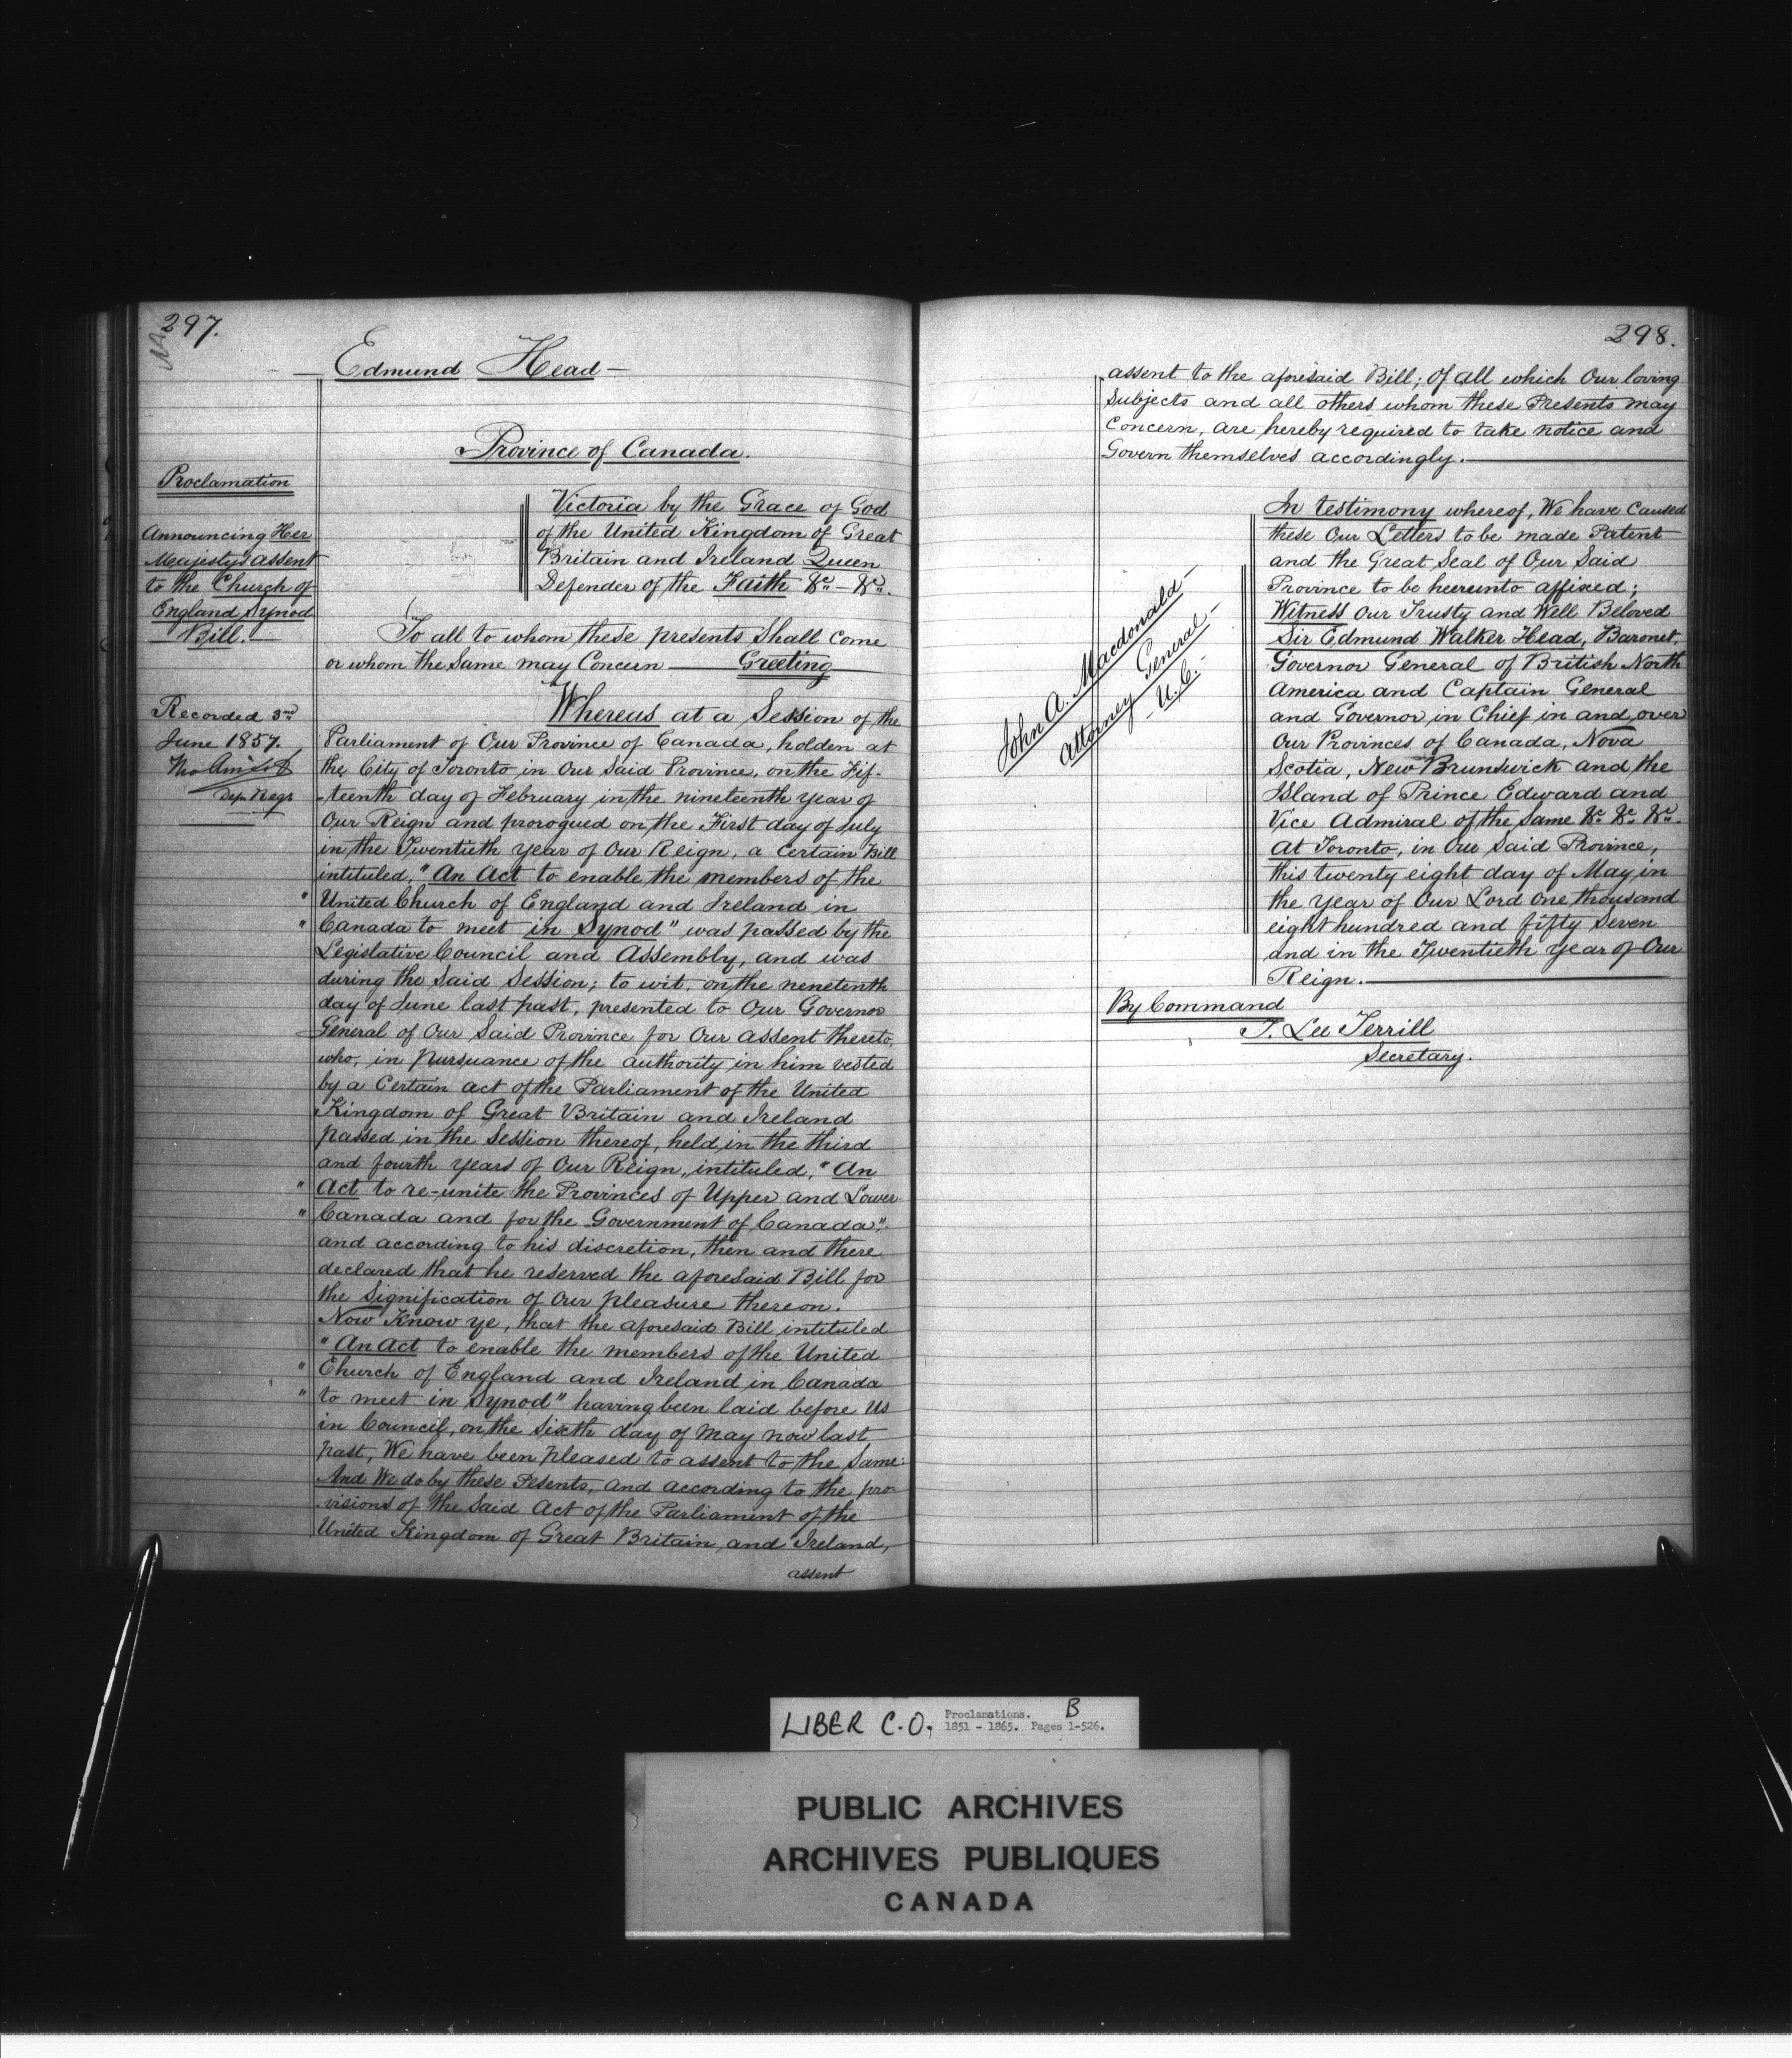 297.
Edmund Head
Province of Canada.
Proclamation
Announcing Her
Majesty's assent
to the Church of
England Synod
Bill.
Recorded 3rd
June 1857.
Dep. Regr
Victoria by the Grace of God
of the United Kingdom of Great
Britain and Ireland Queen
Defender of the Faith &c - &c.
To all to whom these presents Shall come
or whom the Same may Concern — Greeting
Whereas at a Session of the
Parliament of Our Province of Canada, holden at
the City of Toronto in Our Said Province, on the Fif-
-teenth day of February in the nineteenth year of
Our Reign and prorogued on the First day of July
in the Twentieth year of Our Reign, a Certain Bill
intituled, "An Act to enable the members of the
" United Church of England and Ireland in
" Canada to meet in Synod" was passed by the
Legislative Council and Assembly, and was
during the Said Session; to wit, on the nenetenth
day of June last past, presented to Our Governor
General of Our Said Province for Our assent thereto,
who, in pursuance of the authority in him vested
by a Certain act of the Parliament of the United
Kingdom of Great Britain and Ireland
passed in the Session thereof, held in the third
and fourth years of Our Reign, intituled, "An
" Act to re-unite the Provinces of Upper and Lower
" Canada and for the Government of Canada",
and according to his discretion, then and there
declared that he reserved the aforesaid Bill for
the Signification of Our pleasure thereon.
Now Know ye, that the aforesaid Bill intituled
"An Act to enable the members of the United
" Church of England and Ireland in Canada
" to meet in Synod" having been laid before Us
in Council, on the Sixth day of May now last
past, We have been pleased to assent to the Same:
And We do by these Pesents, and according to the pro-
-visions of the Said Act of the Parliament of the
United Kingdom of Great Britain and Ireland,
assent
298.
assent to the aforesaid Bill; Of all which Our loving
Subjects and all others whom these Presents may
Concern, are hereby required to take notice and
Govern themselves accordingly.
John A. Macdonald
Attorney General
U.C.
In testimony whereof, We have Caused
these Our Letters to be made Patent
and the Great Seal of Our Said
Province to be hereunto affixed;
Witness Our Trusty and Well Beloved
Sir Edmund Walker Head, Baronet,
Governor General of British North
America and Captain General
and Governor in Chief in and over
Our Provinces of Canada, Nova
Scotia, New Brunswick and the
Island of Prince Edward and
Vice Admiral of the Same &c. &c. &c.
At Toronto, in Our Said Province,
this twenty eight day of May in
the year of Our Lord One thousand
eight hundred and fifty Seven
and in the Twentieth year of Our
Reign.
By Command
T. Lee Terrill
Secretary.
LIBER C.O, Proclamations. B
1851 - 1865. Pages 1-526.
PUBLIC ARCHIVES
ARCHIVES PUBLIQUES
CANADA